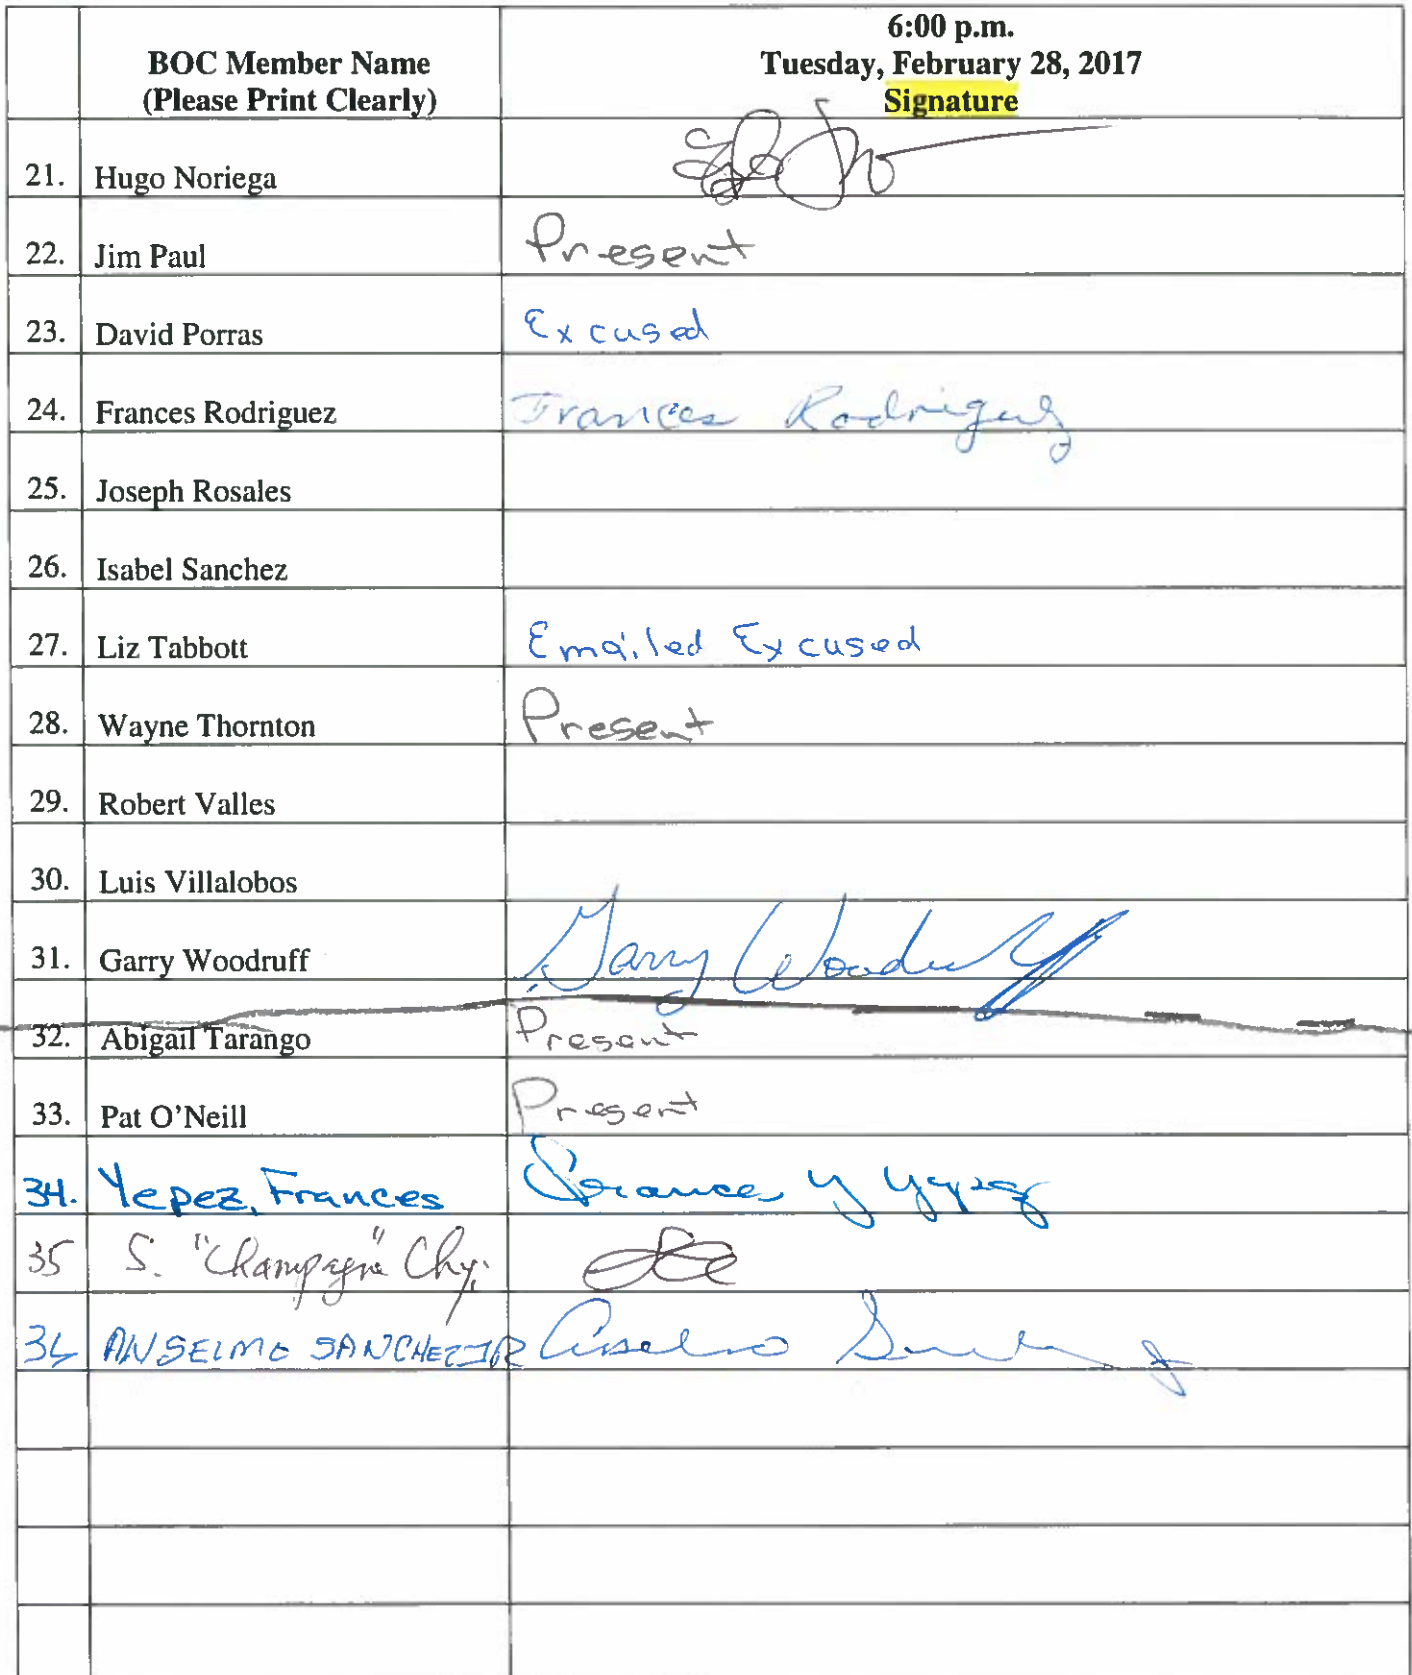 6:00 p.m.
BOC Member Name Tuesday, February 28, 2017
(Please Print Clearly) Signature
21. Hugo Noriega
22. Jim Paul Present
23. David Porras Excused
24. Frances Rodriguez Frances Rodriguez
25. Joseph Rosales
26. Isabel Sanchez
27. Liz Tabbott Emailed Excused
28. Wayne Thornton Present
29. Robert Valles
30. Luis Villalobos
31. Garry Woodruff Garry Woodruff
32. Abigail Tarango Present
33. Pat O'Neill Present
34. Yepez, Frances Frances Y Yepez
35 S. "Champagne"
36 ANSELMO SANCHEZ JR Anselmo